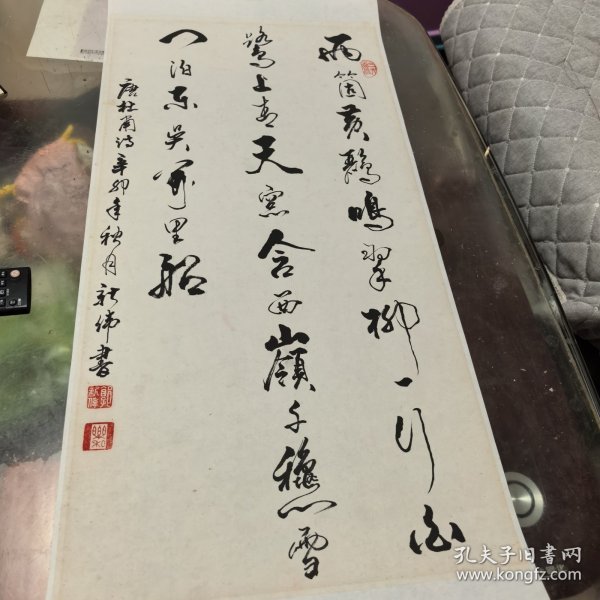 兩箇黃鸝鳴翠柳一行白
鷺上青天窓含西嶺千秌雪
門泊東吳萬里船
唐杜甫詩辛卯年秋月新偉書
孔夫子旧书网
www.kongfz.com